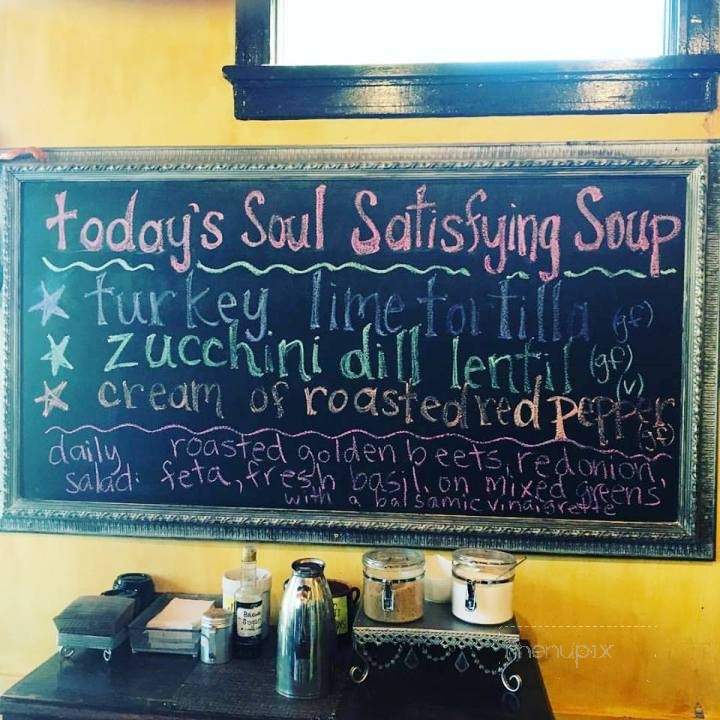 today's Soul Satisfying Soup
turkey lime tortilla (gf)
zucchini dill lentil (gf)
(v)
cream of roasted red pepper
(gf)
daily roasted golden beets, red onion,
salad: feta, fresh basil, on mixed greens,
with a balsamic vinaigrette
Brown
menupix